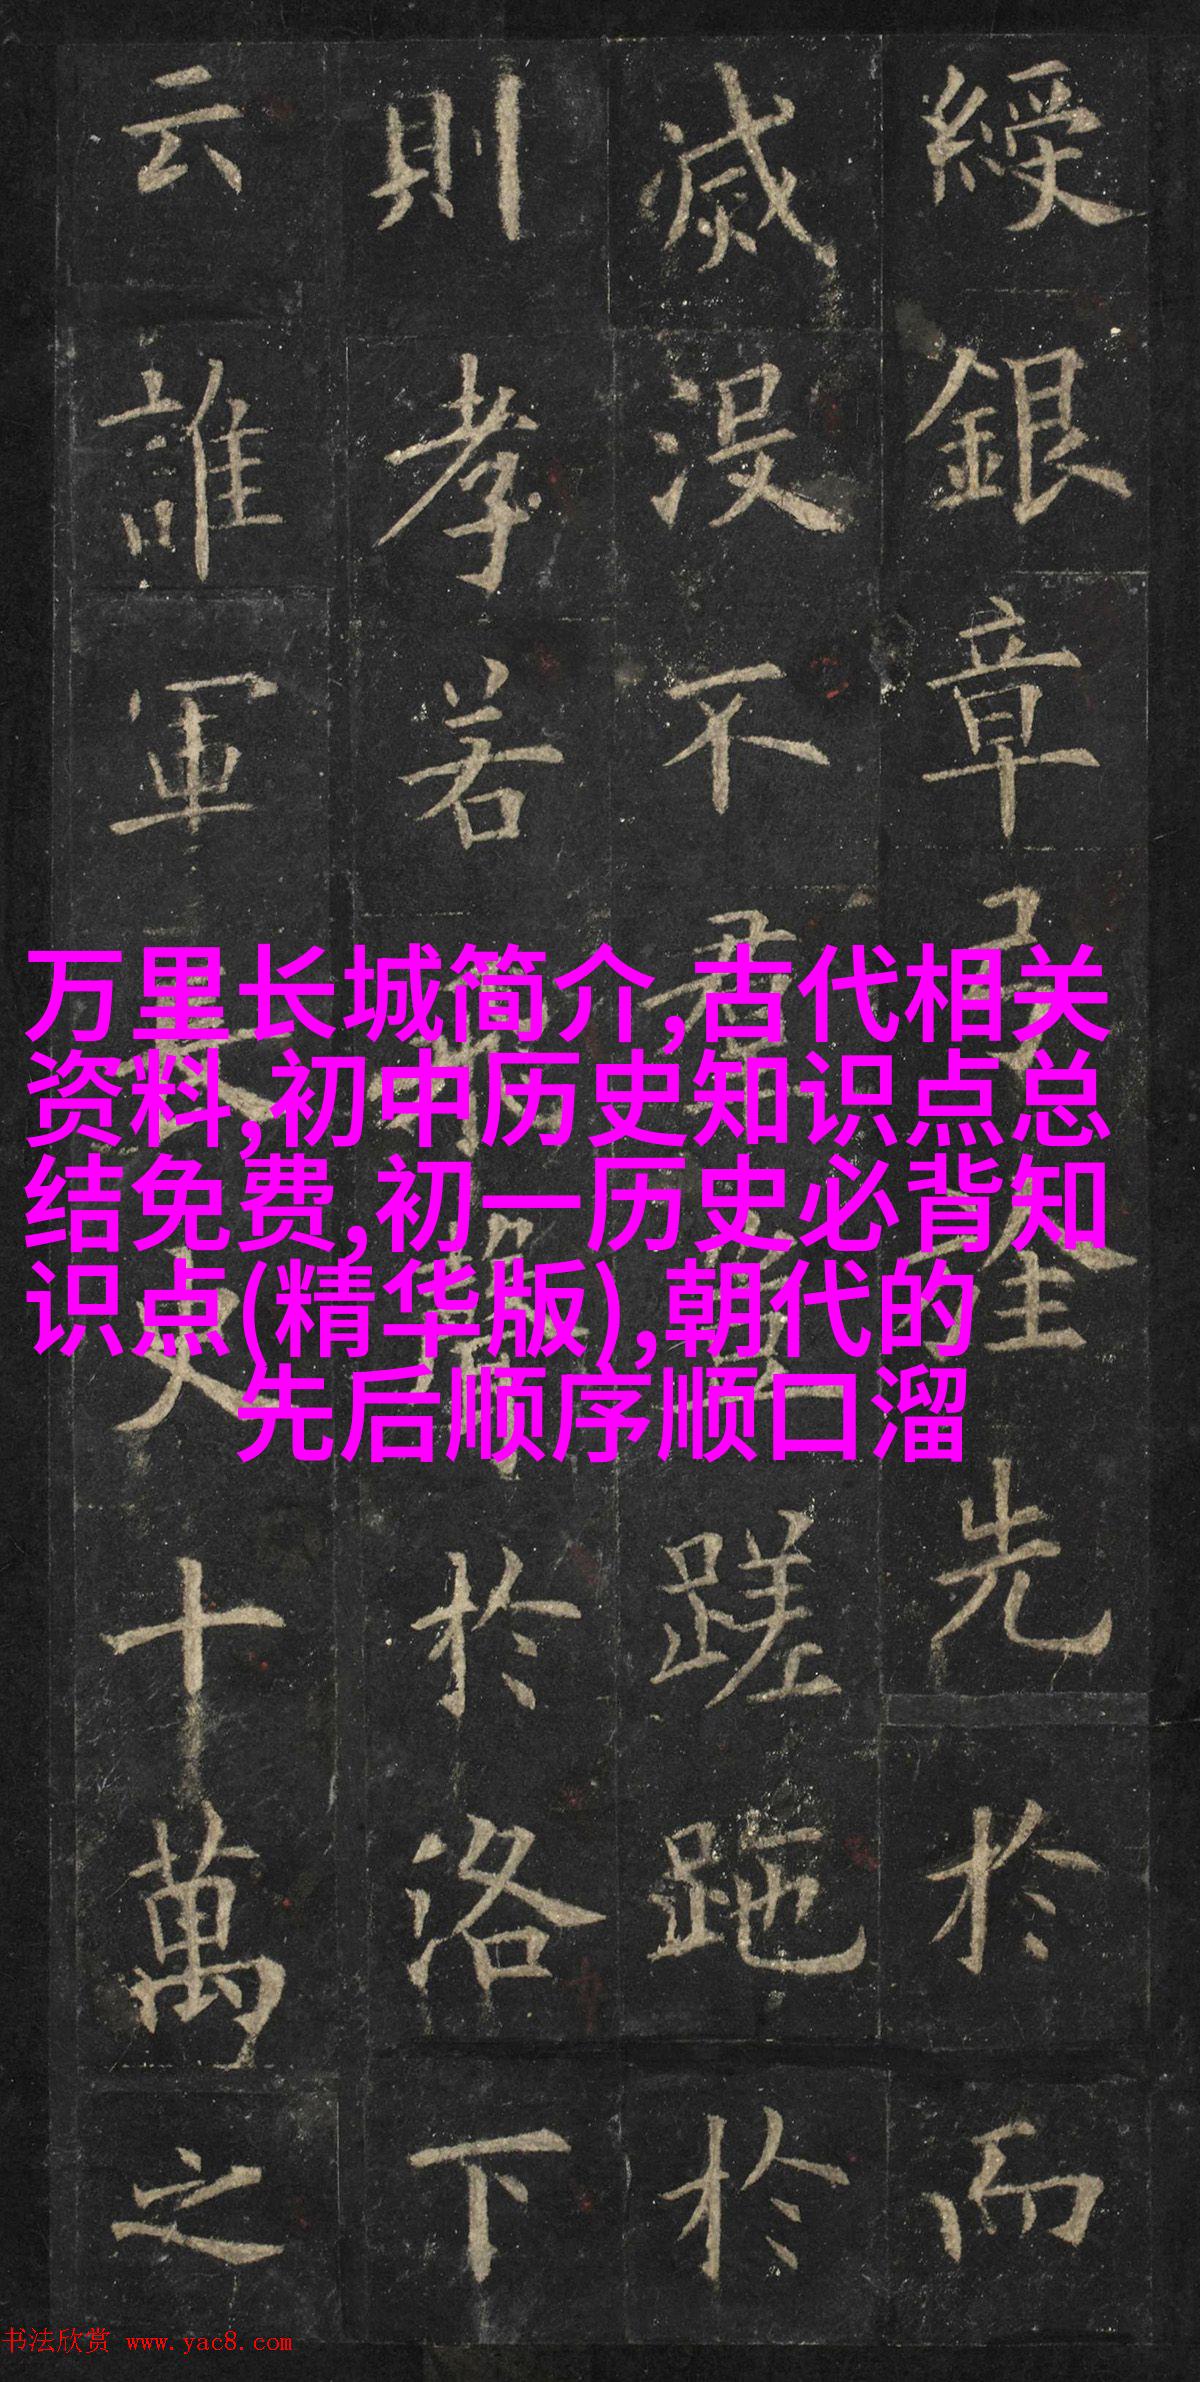 綬銀章先於而
滅没不君蹉跎於
則孝若於洛下
云誰軍長史十萬之
万里长城简介,古代相关
资料,初中历史知识点总
结免费,初一历史必背知
识点(精华版),朝代的
先后顺序顺口溜
书法欣赏 www.yac8.com